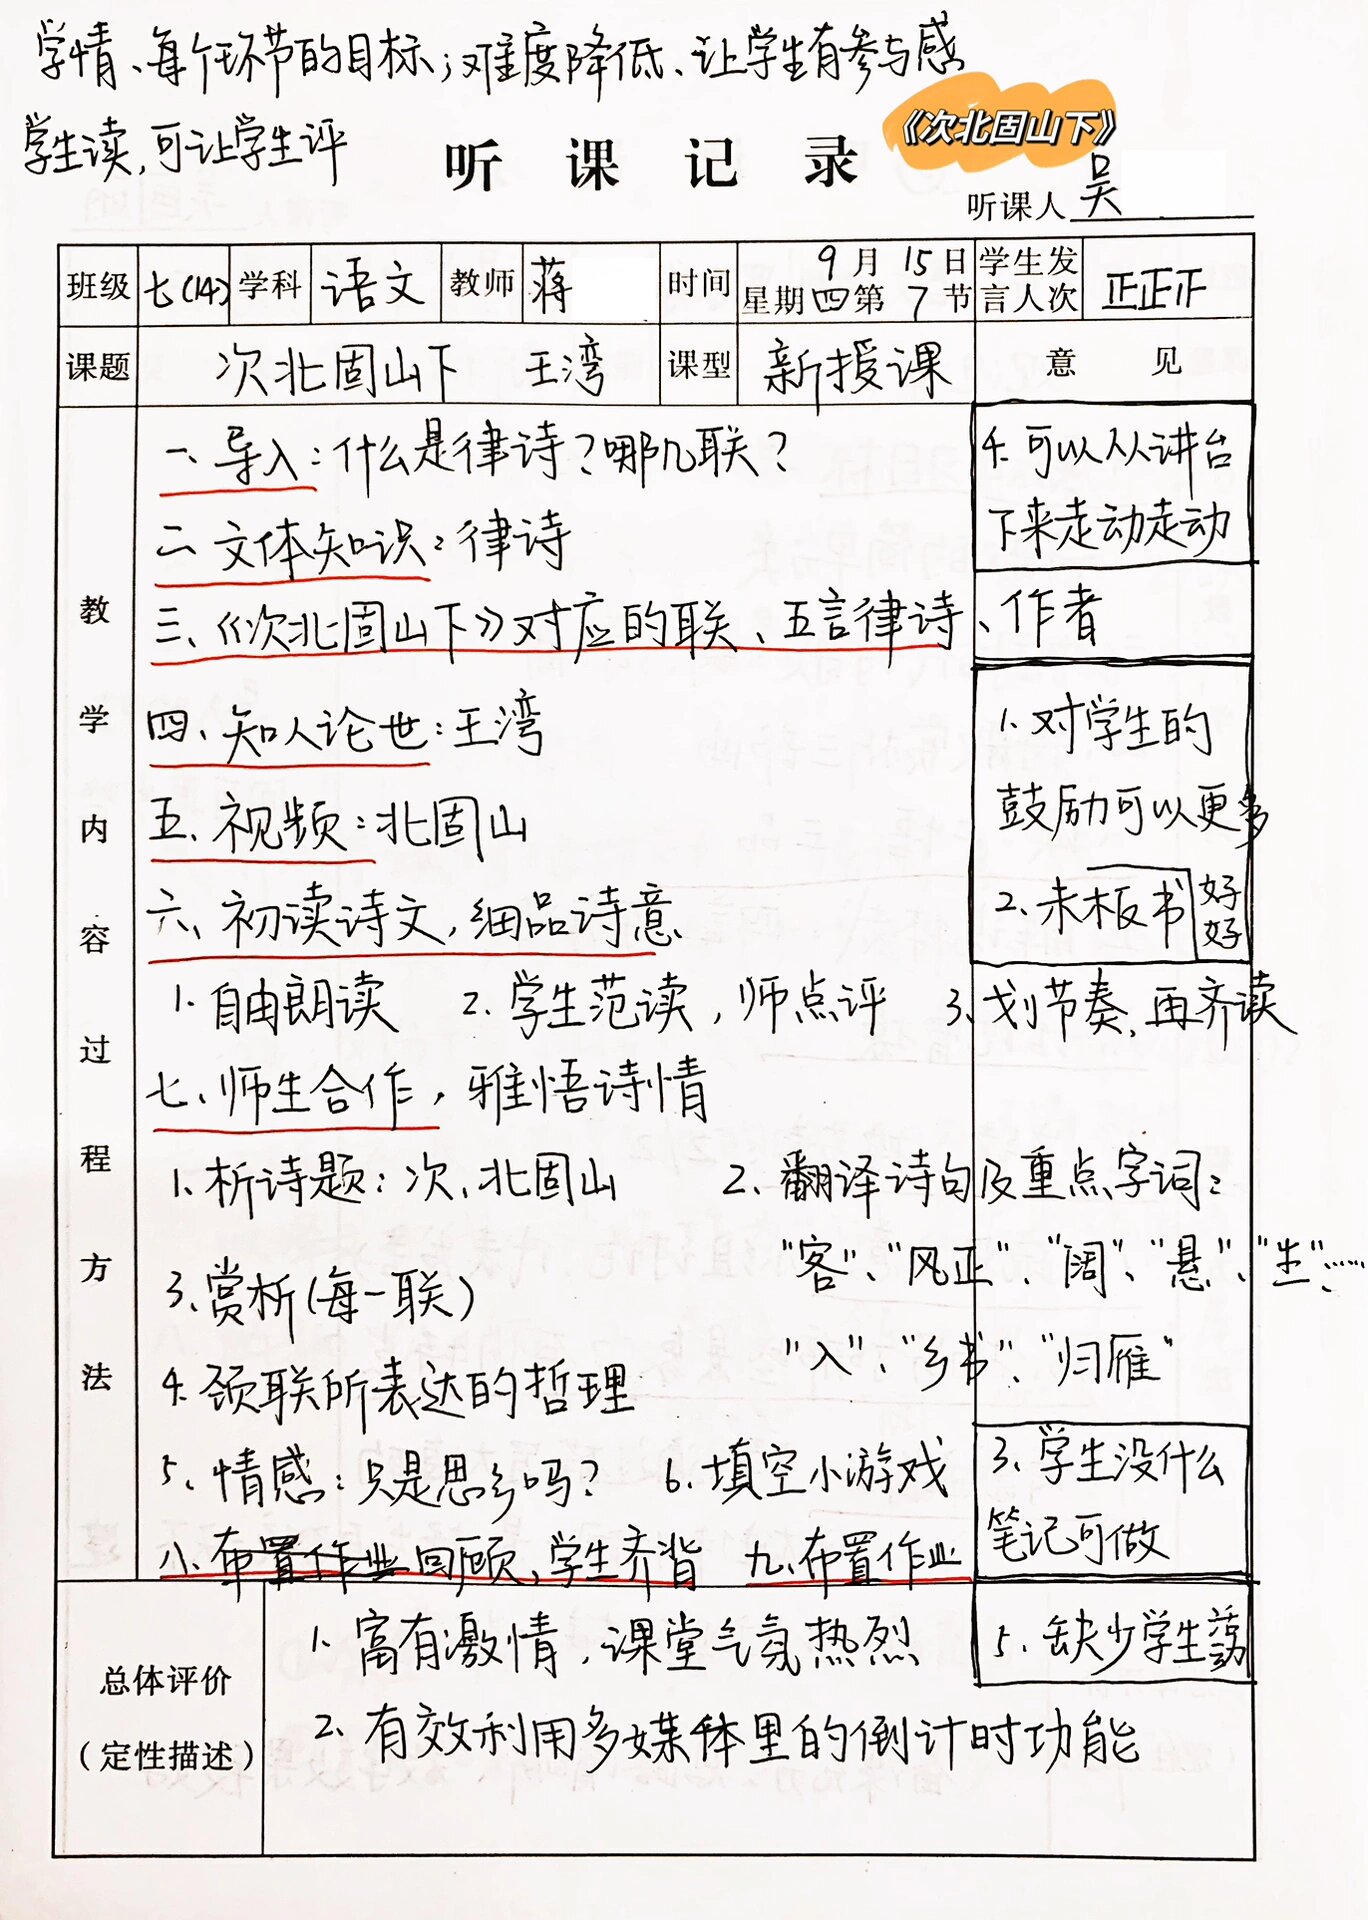 学情、每个环节的目标；难度降低、让学生有参与感
学生读，可让学生评
《次北固山下》
听课记录
听课人 吴
班级 七(14) 学科 语文 教师 蒋 时间 9月15日 星期四第7节 学生发言人次 正正正
课题 次北固山下 王湾 课型 新授课 意见
教学内容过程方法
一、导入：什么是律诗？哪几联？
4.可以从讲台
下来走动走动
二、文体知识：律诗
三、《次北固山下》对应的联、五言律诗、作者
四、知人论世：王湾
1.对学生的
鼓励可以更多
五、视频：北固山
六、初读诗文，细品诗意
2.未板书 好好
1.自由朗读 2.学生范读，师点评 3.划节奏，再齐读
七、师生合作，雅悟诗情
1.析诗题：次、北固山 2.翻译诗句及重点字词：
"客"、"风正"、"阔"、"悬"、"生"……
3.赏析(每一联)
"入"、"乡书"、"归雁"
4.颈联所表达的哲理
5.情感：只是思乡吗？ 6.填空小游戏
3.学生没什么
笔记可做
八、布置作业回顾，学生齐背 九、布置作业
总体评价
（定性描述）
1.富有激情，课堂气氛热烈
5.缺少学生
2.有效利用多媒体里的倒计时功能